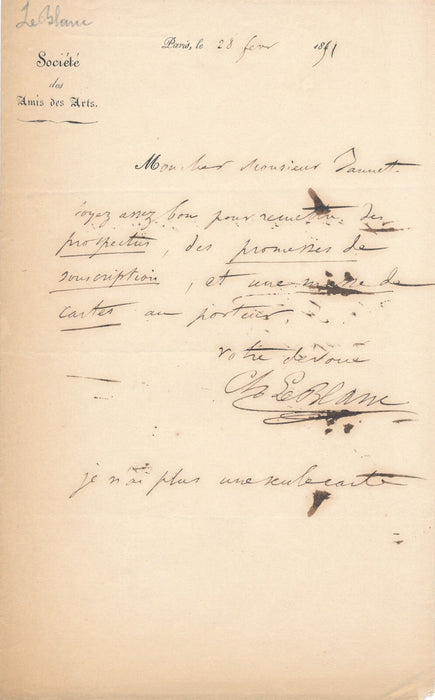 Le Blanc
Société
des
Amis des Arts.
Paris, le 28 fevr 18
Mon cher Monsieur
soyez assez bon pour remettre des
prospectus, des promesses de
souscription, et une masse de
cartes au porteur.
votre devoué
Ch Le Blanc
je n'ai plus une seule carte